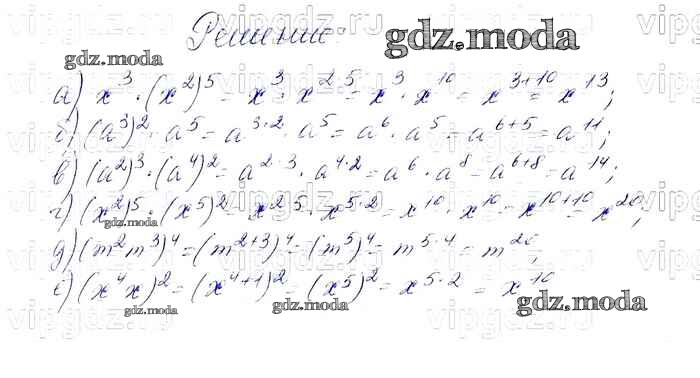 Решение:
gdz.moda
gdz.moda
а) x³ · (x²)⁵ = x³ · x²·⁵ = x³ · x¹⁰ = x³⁺¹⁰ = x¹³;
б) (a³)² · a⁵ = a³·² · a⁵ = a⁶ · a⁵ = a⁶⁺⁵ = a¹¹;
в) (a²)³ · (a⁴)² = a²·³ · a⁴·² = a⁶ · a⁸ = a⁶⁺⁸ = a¹⁴;
г) (x²)⁵ · (x⁵)² = x²·⁵ · x⁵·² = x¹⁰ · x¹⁰ = x¹⁰⁺¹⁰ = x²⁰;
gdz.moda
д) (m²m³)⁴ = (m²⁺³)⁴ = (m⁵)⁴ = m⁵·⁴ = m²⁰;
е) (x⁴x)² = (x⁴⁺¹)² = (x⁵)² = x⁵·² = x¹⁰
gdz.moda gdz.moda gdz.moda